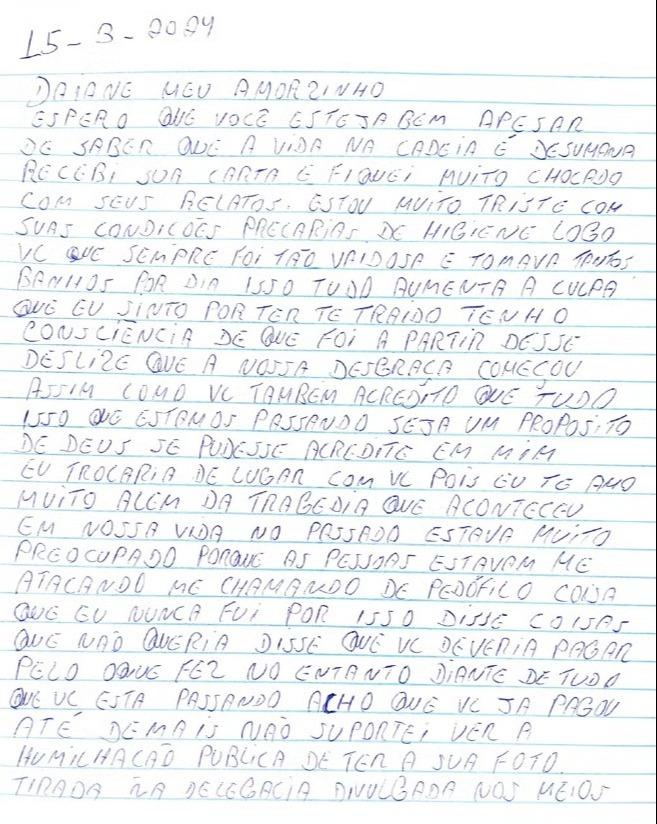 15-3-2024
DAIANE MEU AMORZINHO
ESPERO QUE VOCÊ ESTEJA BEM APESAR
DE SABER QUE A VIDA NA CADEIA É DESUMANA
RECEBI SUA CARTA E FIQUEI MUITO CHOCADO
COM SEUS RELATOS. ESTOU MUITO TRISTE COM
SUAS CONDIÇÕES PRECARIAS DE HIGIENE LOGO
VC QUE SEMPRE FOI TÃO VAIDOSA E TOMAVA TANTOS
BANHOS POR DIA ISSO TUDO AUMENTA A CULPA
QUE EU SINTO POR TER TE TRAIDO TENHO
CONSCIÊNCIA DE QUE FOI A PARTIR DESSE
DESLIZE QUE A NOSSA DESGRAÇA COMEÇOU
ASSIM COMO VC TAMBEM ACREDITO QUE TUDO
ISSO QUE ESTAMOS PASSANDO SEJA UM PROPOSITO
DE DEUS SE PUDESSE ACREDITE EM MIM
EU TROCARIA DE LUGAR COM VC POIS EU TE AMO
MUITO ALEM DA TRAGEDIA QUE ACONTECEU
EM NOSSA VIDA NO PASSADO ESTAVA MUITO
PREOCUPADO PORQUE AS PESSOAS ESTAVAM ME
ATACANDO ME CHAMANDO DE PEDÓFILO COISA
QUE EU NUNCA FUI POR ISSO DISSE COISAS
QUE NÃO QUERIA DISSE QUE VC DEVERIA PAGAR
PELO OQUE FEZ NO ENTANTO DIANTE DE TUDO
QUE VC ESTA PASSANDO ACHO QUE VC JA PAGOU
ATÉ DEMAIS NÃO SUPORTEI VER A
HUMILHAÇÃO PUBLICA DE TER A SUA FOTO
TIRADA NA DELEGACIA DIVULGADA NOS MEIOS